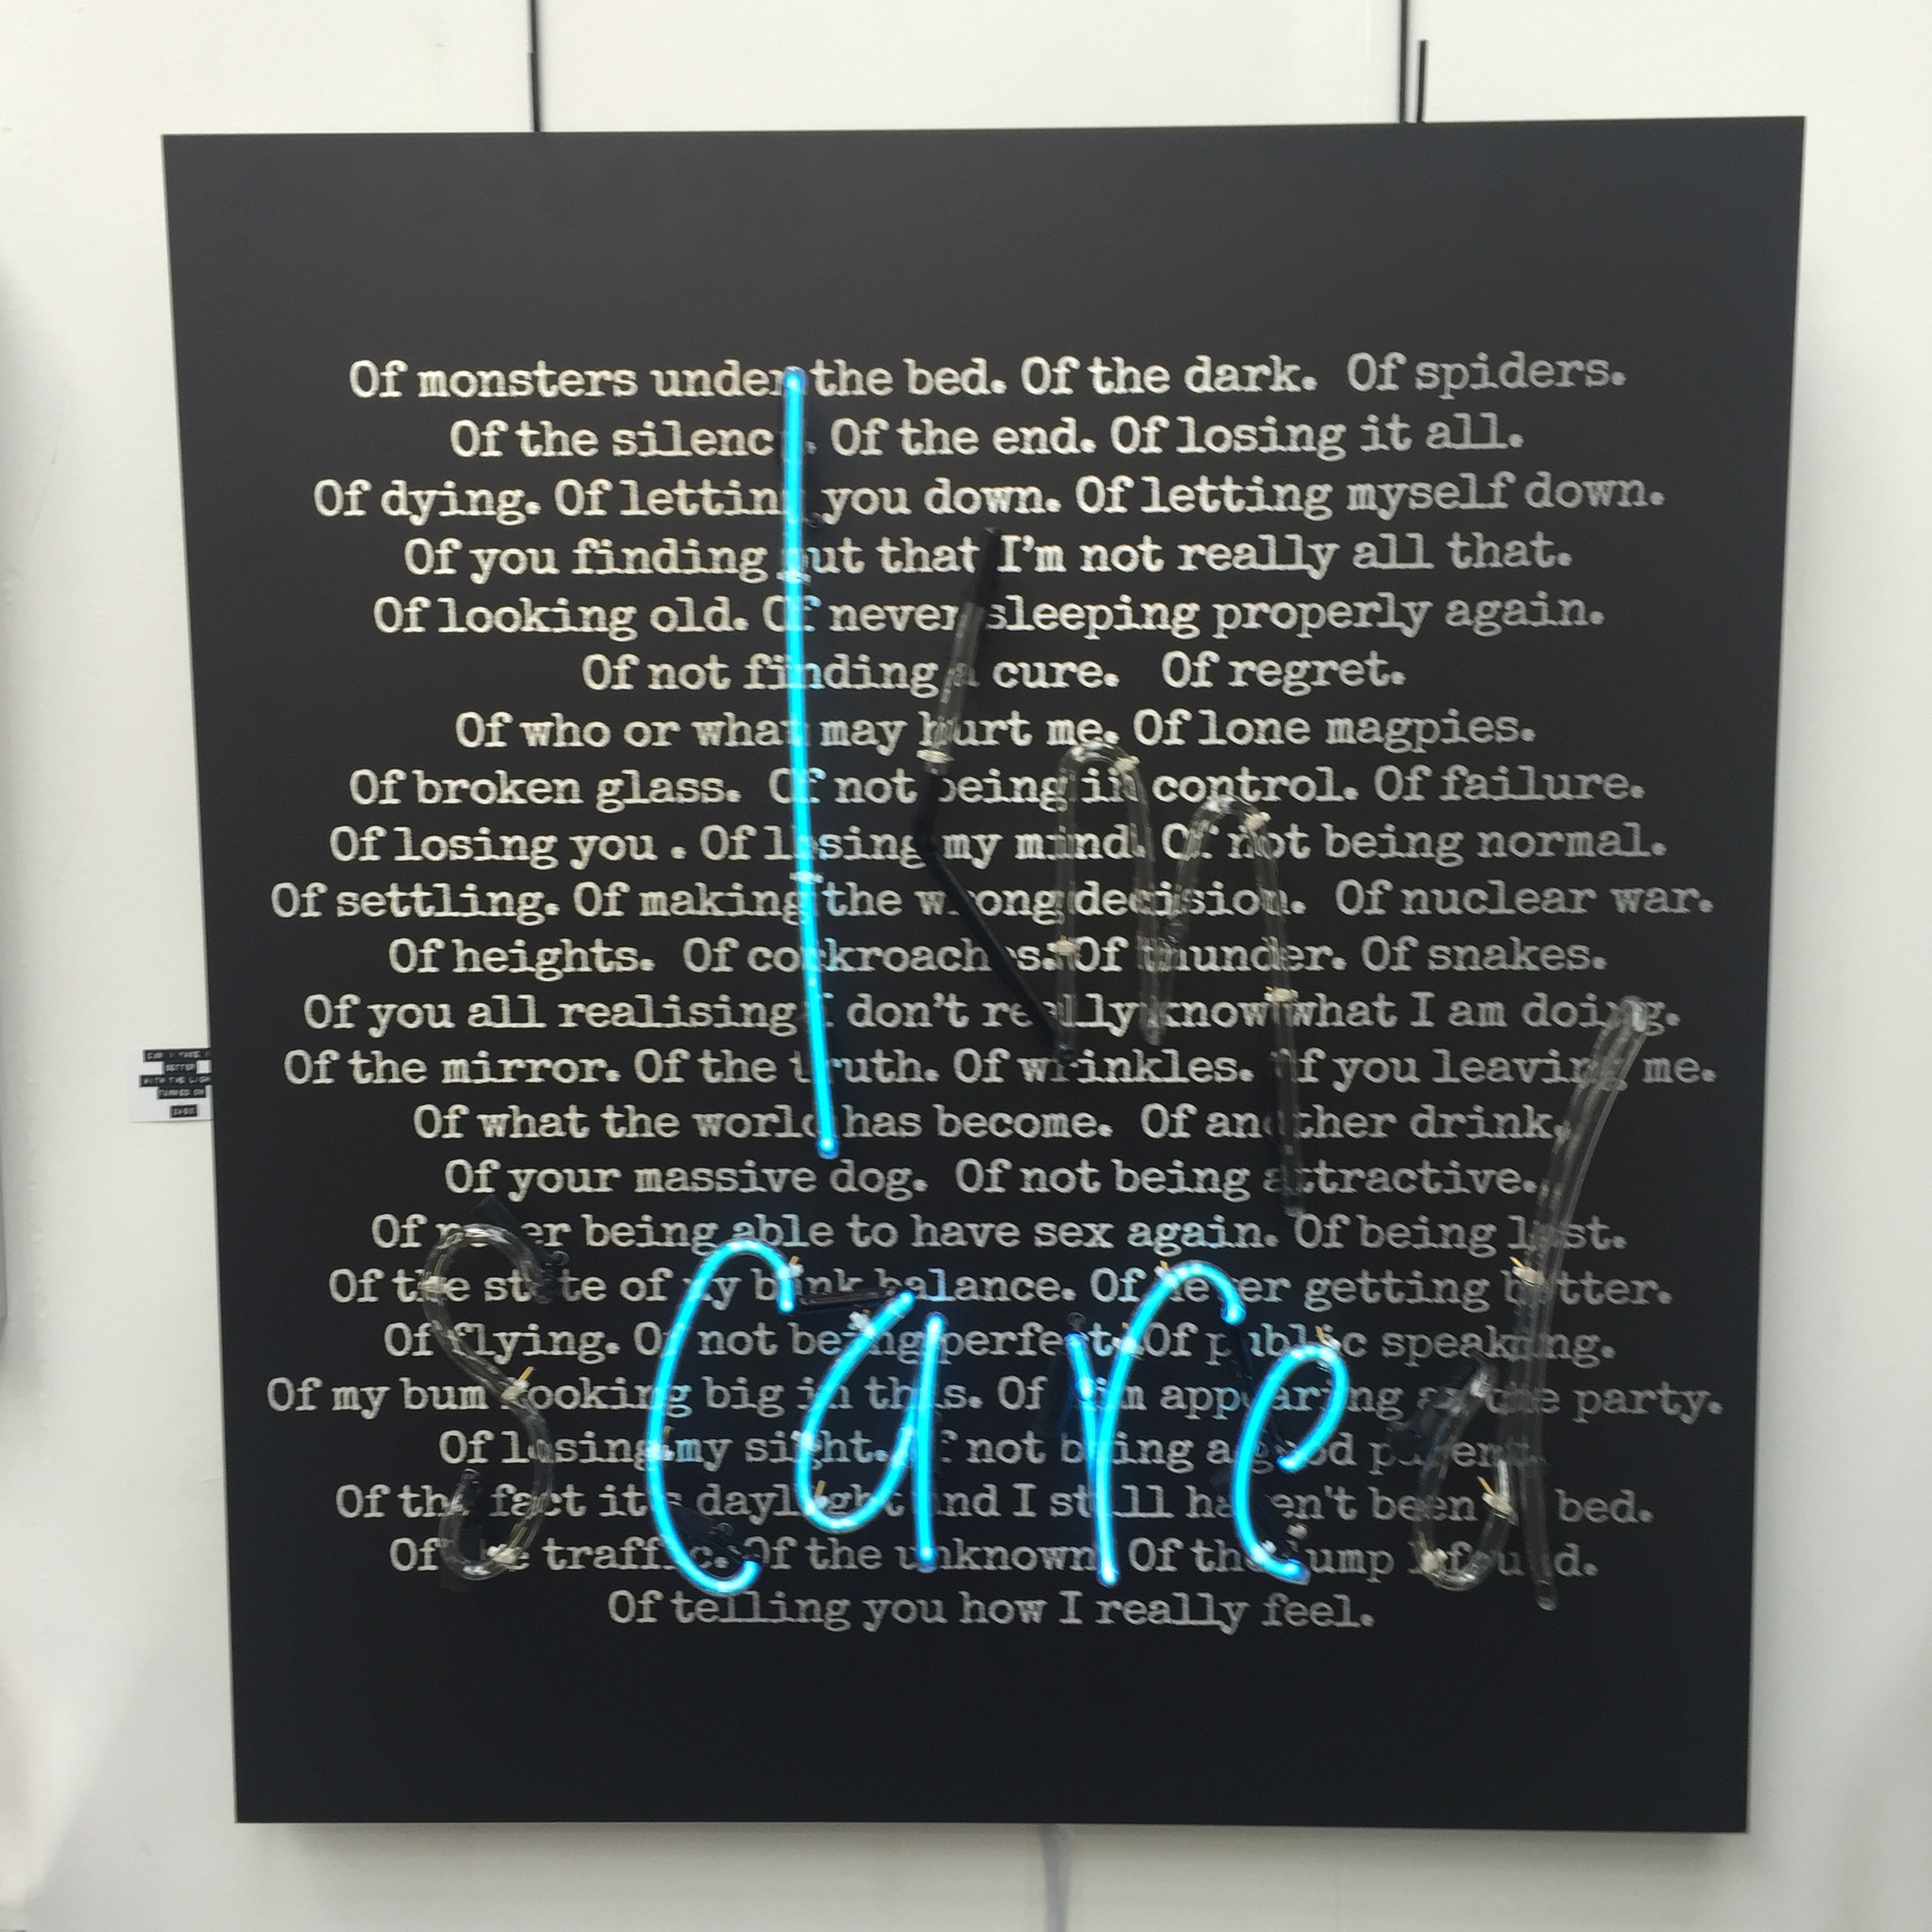 Of monsters under the bed. Of the dark. Of spiders.
Of the silence. Of the end. Of losing it all.
Of dying. Of letting you down. Of letting myself down.
Of you finding out that I'm not really all that.
Of looking old. Of never sleeping properly again.
Of not finding a cure. Of regret.
Of who or what may hurt me. Of lone magpies.
Of broken glass. Of not being in control. Of failure.
Of losing you . Of losing my mind. Of not being normal.
Of settling. Of making the wrong decision. Of nuclear war.
Of heights. Of cockroaches. Of thunder. Of snakes.
Of you all realising I don't really know what I am doing.
Of the mirror. Of the truth. Of wrinkles. Of you leaving me.
Of what the world has become. Of another drink.
Of your massive dog. Of not being attractive.
Of never being able to have sex again. Of being lost.
Of the state of my bank balance. Of never getting better.
Of flying. Of not being perfect. Of public speaking.
Of my bum looking big in this. Of him appearing at the party.
Of losing my sight. Of not being a good parent.
Of the fact it's daylight and I still haven't been to bed.
Of the traffic. Of the unknown. Of the lump I found.
Of telling you how I really feel.
I'm
scared